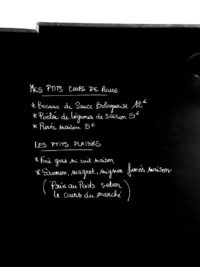 MES PTITS COUPS DE POUCE
* Bocaux de Sauce Bolognaise 12€
* Poêlée de légumes de saison 5€
* Purée maison 5€
LES PTITS PLAISIRS
* Foie gras mi cuit maison
* Saumon, magret, mignon fumés maison
(Prix au Poids selon
le cours du marché)